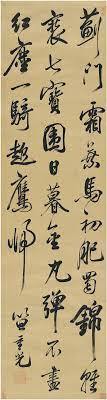 薊門霜落馬初肥蜀錦
七寶圍日暮金丸彈不盡
紅塵一騎趁鷹歸 笪重光